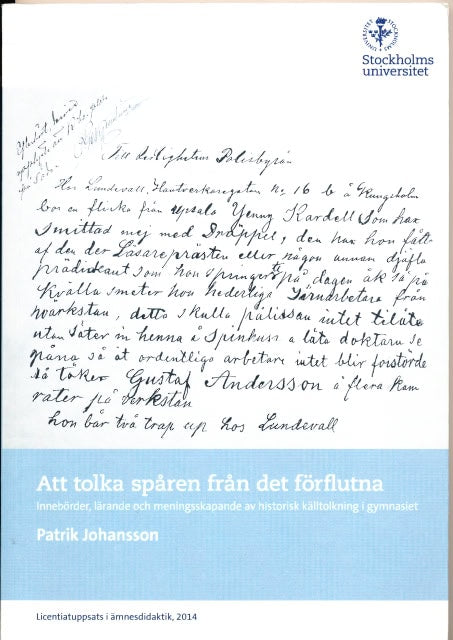 Stockholms
universitet
Till derlighetens Polisbyrån
Hos Lundevall, Hantverkaregatan No 16 b å Kungsholm
bor en flicka från Upsala Yenny Kardell som har
smittad mej med Dräppel, den har hon fått
af den der Läsareprästen eller någon annan djäfla
prädikant som hon springer på dagen åk så på
kvälla smeter hon hederliga Järnarbetare från
värkstan, detta skulla pålissan intet tilåta
utan säter in henna å Spinhuss a låta doktarn se
några så åt ordentliga arbetare intet blir förstörde
så töker Gustaf Andersson å flera kam
rater på virkstan
hon bår två trap up hos Lundevall
Att tolka spåren från det förflutna
Innebörder, lärande och meningsskapande av historisk källtolkning i gymnasiet
Patrik Johansson
Licentiatuppsats i ämnesdidaktik, 2014